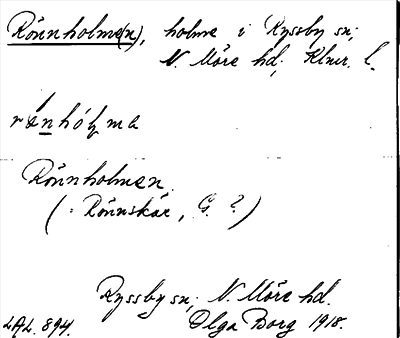 Rönnholme(n), holme i Ryssby sn;
N. Möre hd; Klmr. l.
Rönnholmen.
(: Rönnskär, G. ?)
Ryssby sn; N. Möre hd.
LAL. 894. Olga Borg 1918.